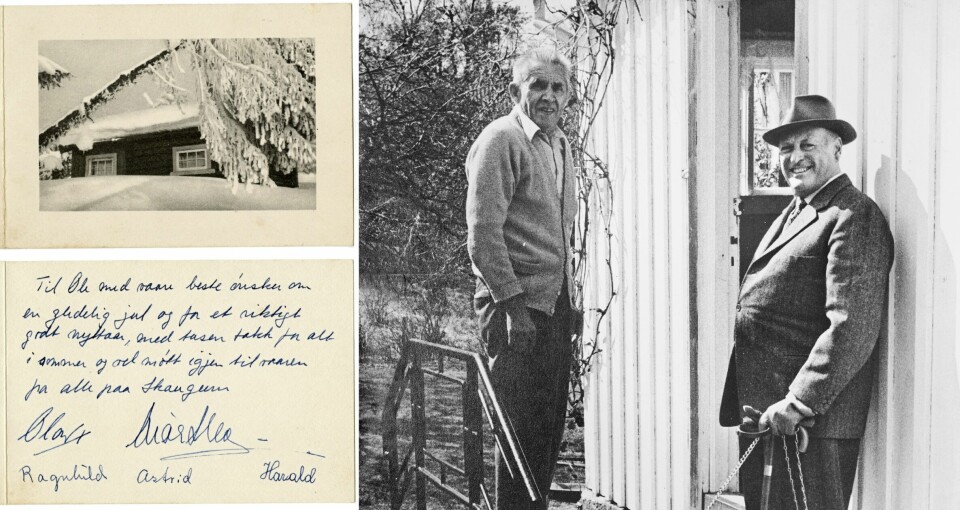 Til Ole med vaare beste ønsker om
en gledelig jul og for et riktigt
godt nyttaar, med tusen takk for alt
i sommer og vel møtt igjen til vaaren
fra alle paa Skaugum
Olav Märtha
Ragnhild Astrid Harald